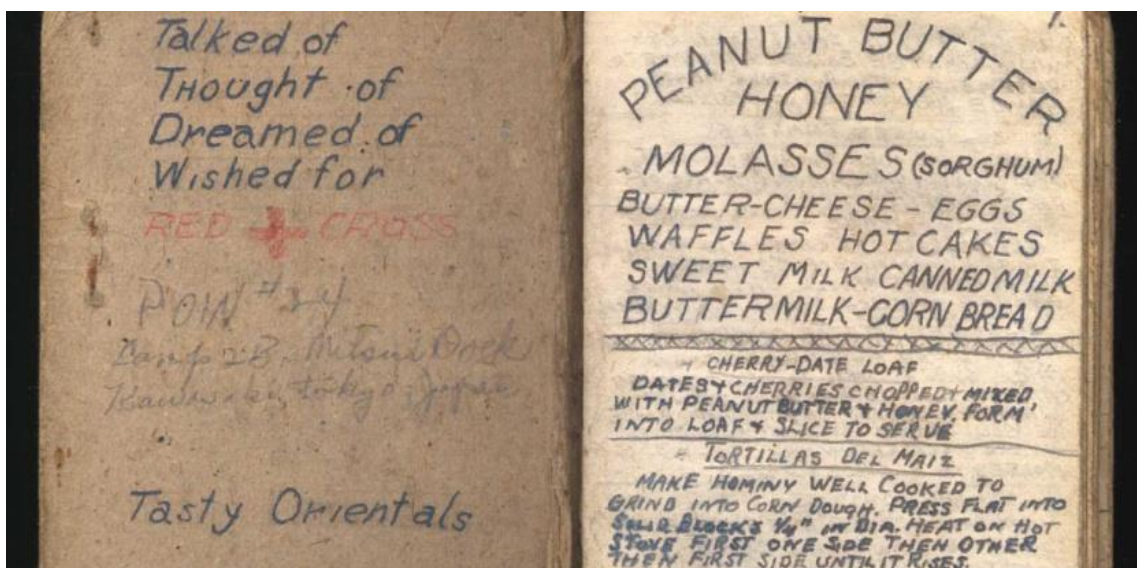 Talked of
Thought of
Dreamed of
Wished for
RED + CROSS
POW #24
Camp 2B, Mitsui Dock
Kawasaki, Tokyo, Japan
Tasty Orientals
1.
PEANUT BUTTER
HONEY
MOLASSES (SORGHUM)
BUTTER-CHEESE - EGGS
WAFFLES HOT CAKES
SWEET MILK CANNED MILK
BUTTERMILK-CORN BREAD
CHERRY-DATE LOAF
DATES + CHERRIES CHOPPED + MIXED
WITH PEANUT BUTTER + HONEY. FORM
INTO LOAF + SLICE TO SERVE
TORTILLAS DEL MAIZ
MAKE HOMINY WELL COOKED TO
GRIND INTO CORN DOUGH. PRESS FLAT INTO
SOLID BLOCKS 1/4" IN DIA. HEAT ON HOT
STOVE FIRST ONE SIDE THEN OTHER
THEN FIRST SIDE UNTIL IT RISES.